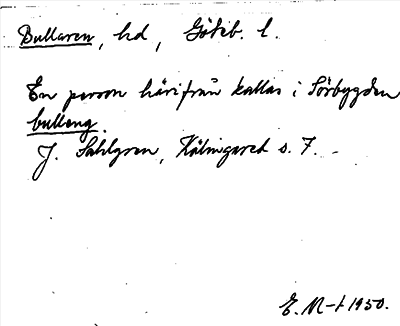 Bullaren, hd, Göteb. l.
En person härifrån kallas i Sörbygden
bulleng.
J. Sahlgren, Hälsingared s. 7.
E. M-t 1950.